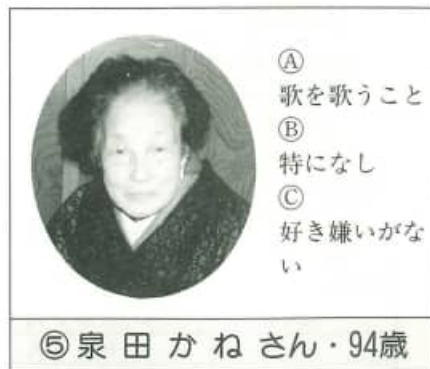 Ⓐ
歌を歌うこと
Ⓑ
特になし
Ⓒ
好き嫌いがな
い
⑤泉田かねさん・94歳